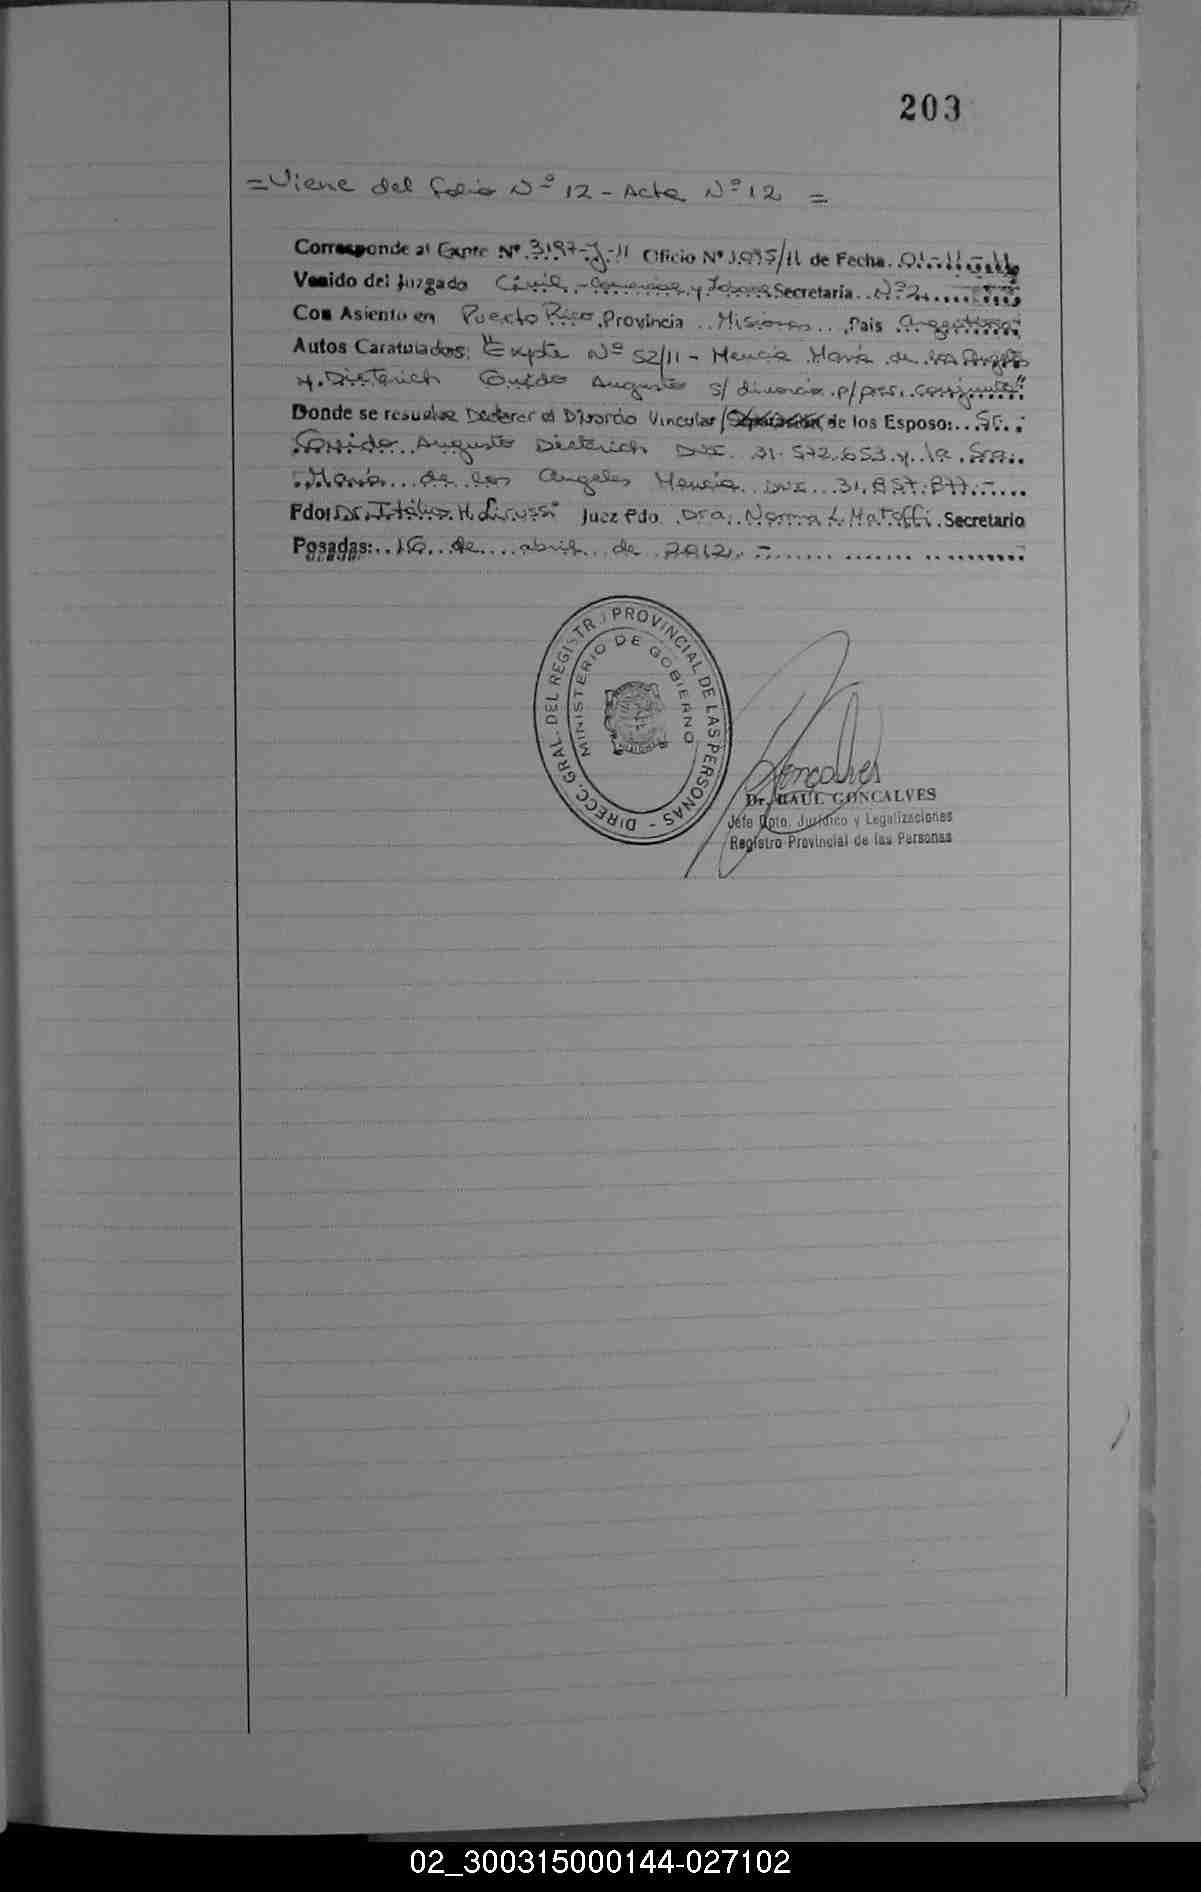 203
= Viene del folio Nº 12 - Acta Nº 12 =
Corresponde al Expte Nº 3197-J-11 Oficio Nº 1.095/11 de Fecha 01-11-11
Venido del Juzgado Civil, Comercial y Laboral Secretaria Nº 2
Con Asiento en Puerto Rico Provincia Misiones Pais Argentina
Autos Caratulados: "Expte Nº 52/11 - Mencia María de los Angeles
y Dieterich Guido Augusto s/ divorcio p/ pres. conjunta"
Donde se resuelve Declarar el Divorcio Vincular / de los Esposo: Sr.
Guido Augusto Dieterich DNI. 31.572.653 y la Sra.
María de los Angeles Mencia DNI 31.857.877
Fdo: Dr. H. Juez Fdo. Dra. Norma L. Secretario
Posadas: 16 de abril de 2012
DIRECC. GRAL. DEL REGISTRO PROVINCIAL DE LAS PERSONAS -
MINISTERIO DE GOBIERNO
Goncalves
Dr. RAUL GONCALVES
Jefe Dpto. Jurídico y Legalizaciones
Registro Provincial de las Personas
02_300315000144-027102